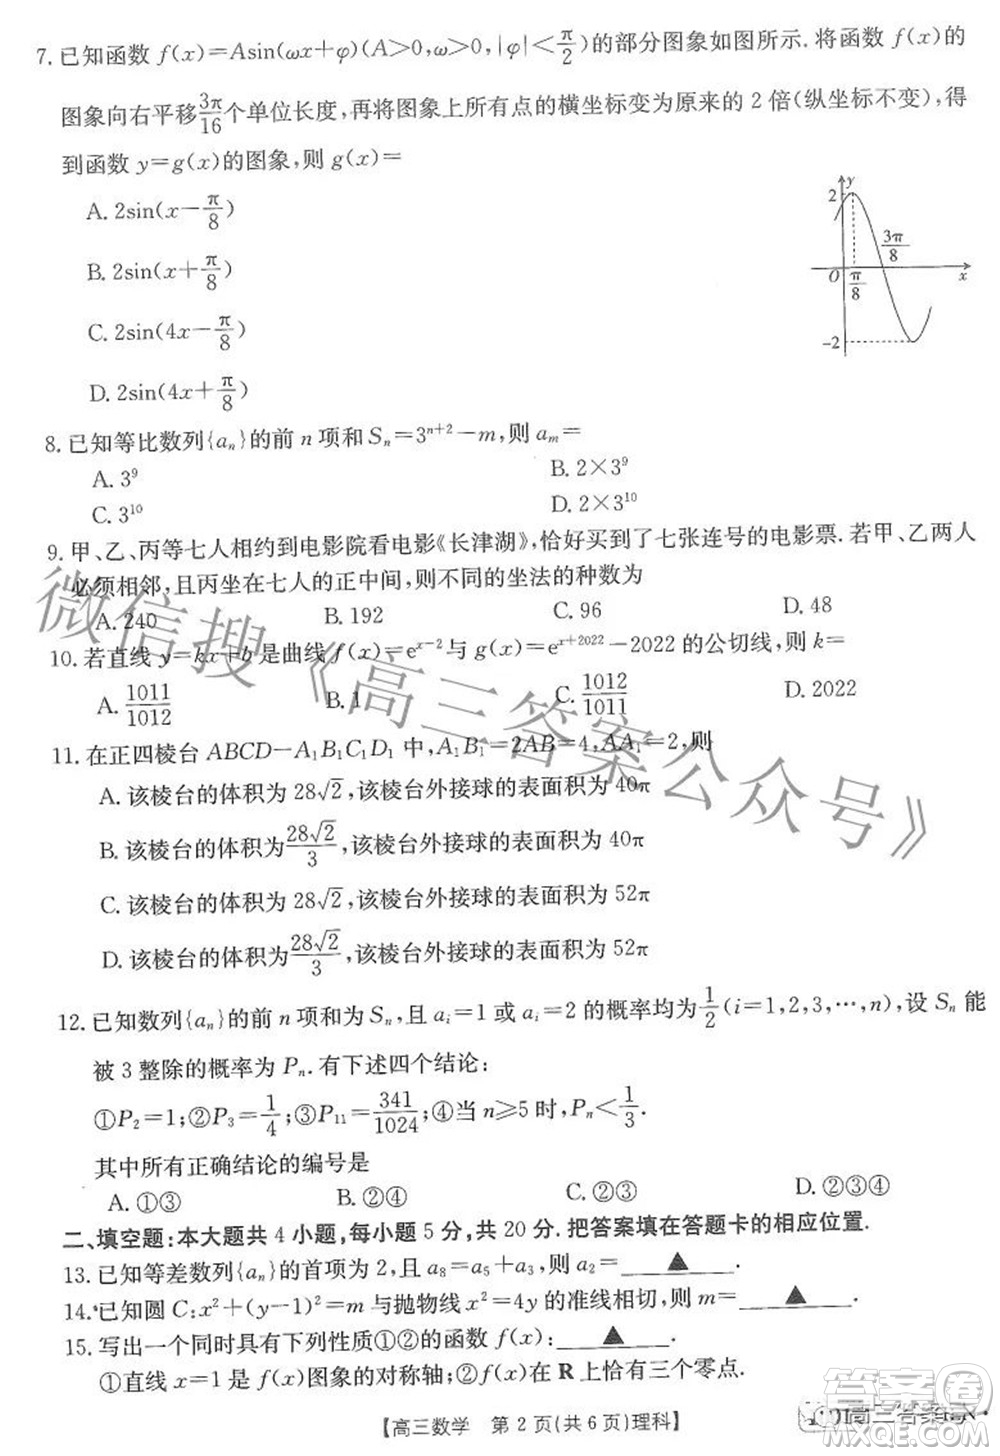 7. 已知函数 f(x)=Asin(ωx+φ)(A>0,ω>0,|φ|<π/2)的部分图象如图所示. 将函数 f(x)的
图象向右平移3π/16个单位长度,再将图象上所有点的横坐标变为原来的 2 倍(纵坐标不变),得
到函数 y=g(x)的图象,则 g(x)=
A. 2sin(x-π/8)
B. 2sin(x+π/8)
C. 2sin(4x-π/8)
D. 2sin(4x+π/8)
y
2
3π/8
O
π/8
x
-2
8. 已知等比数列{aₙ}的前 n 项和 Sₙ=3ⁿ⁺²-m,则 aₘ=
A. 3⁹
B. 2×3⁹
C. 3¹⁰
D. 2×3¹⁰
9. 甲、乙、丙等七人相约到电影院看电影《长津湖》,恰好买到了七张连号的电影票. 若甲、乙两人
必须相邻,且丙坐在七人的正中间,则不同的坐法的种数为
A. 240
B. 192
C. 96
D. 48
10. 若直线 y=kx+b 是曲线 f(x)=eˣ⁻² 与 g(x)=eˣ⁺²⁰²²-2022 的公切线,则 k=
A. 1011/1012
B. 1
C. 1012/1011
D. 2022
11. 在正四棱台 ABCD-A₁B₁C₁D₁ 中,A₁B₁=2AB=4,AA₁=2,则
A. 该棱台的体积为 28√2,该棱台外接球的表面积为 40π
B. 该棱台的体积为28√2/3,该棱台外接球的表面积为 40π
C. 该棱台的体积为 28√2,该棱台外接球的表面积为 52π
D. 该棱台的体积为28√2/3,该棱台外接球的表面积为 52π
12. 已知数列{aₙ}的前 n 项和为 Sₙ,且 aᵢ=1 或 aᵢ=2 的概率均为1/2(i=1,2,3,…,n),设 Sₙ 能
被 3 整除的概率为 Pₙ. 有下述四个结论:
①P₂=1;②P₃=1/4;③P₁₁=341/1024;④当 n≥5 时,Pₙ<1/3.
其中所有正确结论的编号是
A. ①③
B. ②④
C. ②③
D. ②③④
二、填空题:本大题共 4 小题,每小题 5 分,共 20 分. 把答案填在答题卡的相应位置.
13. 已知等差数列{aₙ}的首项为 2,且 a₈=a₅+a₃,则 a₂=____▲____.
14. 已知圆 C:x²+(y-1)²=m 与抛物线 x²=4y 的准线相切,则 m=____▲____.
15. 写出一个同时具有下列性质①②的函数 f(x):____▲____.
①直线 x=1 是 f(x)图象的对称轴;②f(x)在 R 上恰有三个零点.
【高三数学 第 2 页(共 6 页)理科】
微信搜《高三答案公众号》
答案圈